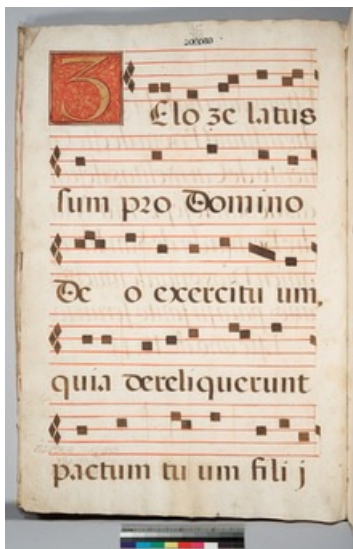 Zelo ze latus
sum pro Domino
De o exercitu um,
quia dereliquerunt
pactum tu um fili j